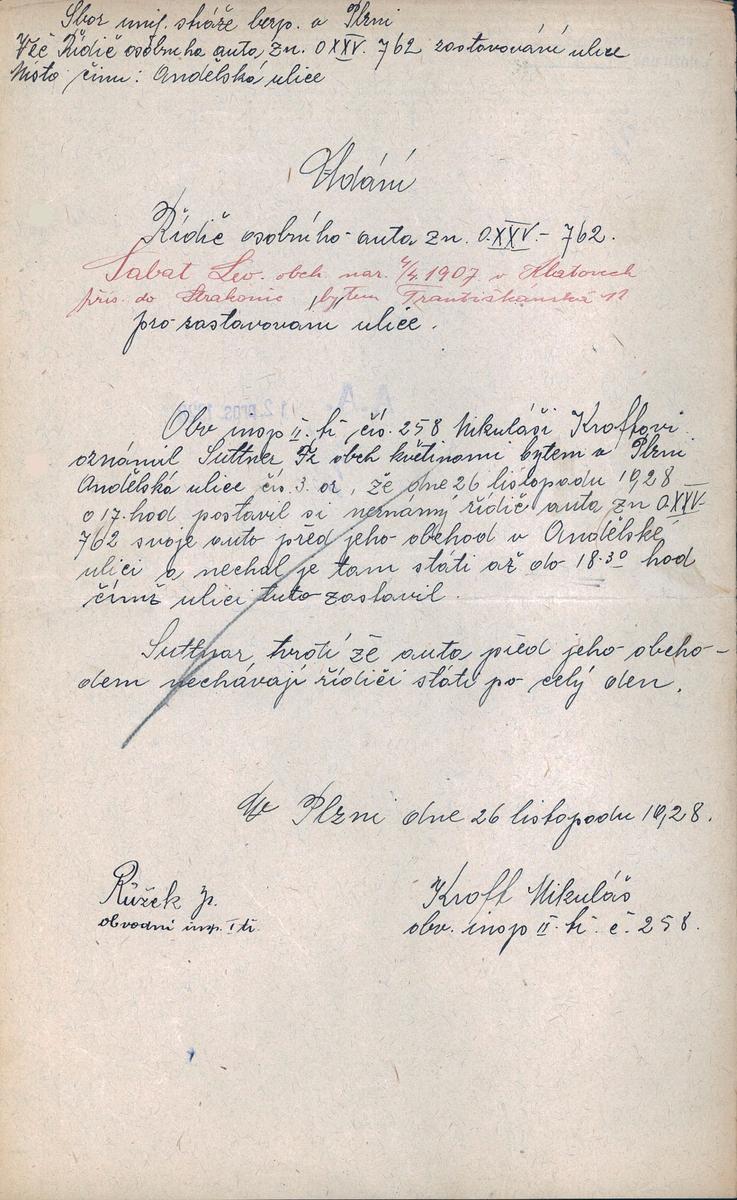 Sbor unif. stráže bezp. v Plzni
Věc Řidič osobního auta zn. OXXV. 762 zastavování ulice
Místo činu: Andělská ulice
Udání
Řidič osobního auta zn. O.XXV.- 762.
Sabat Leo. obch. nar. 4/4 1907 v Klatovech
přís. do Strakonic, bytem Františkánská 11
pro zastavovaní ulice.
Obv insp II. tř. čís. 258 Mikuláši Kroftovi
oznámil Suttner Fr obch květinami bytem v Plzni
Andělská ulice čís. 3. or, že dne 26 listopadu 1928
o 17. hod postavil si neznámý řidič auta zn OXXV-
762 svoje auto před jeho obchod v Andělské
ulici a nechal je tam státi až do 18.30 hod
čímž ulici tuto zastavil.
Suttnar, tvrdí že auta před jeho obcho-
dem nechávají řidiči státi po celý den.
V Plzni dne 26 listopadu 1928.
Růžek
obvodní insp. I tř.
Kroft Mikuláš
obv. insp II. tř. č. 258.